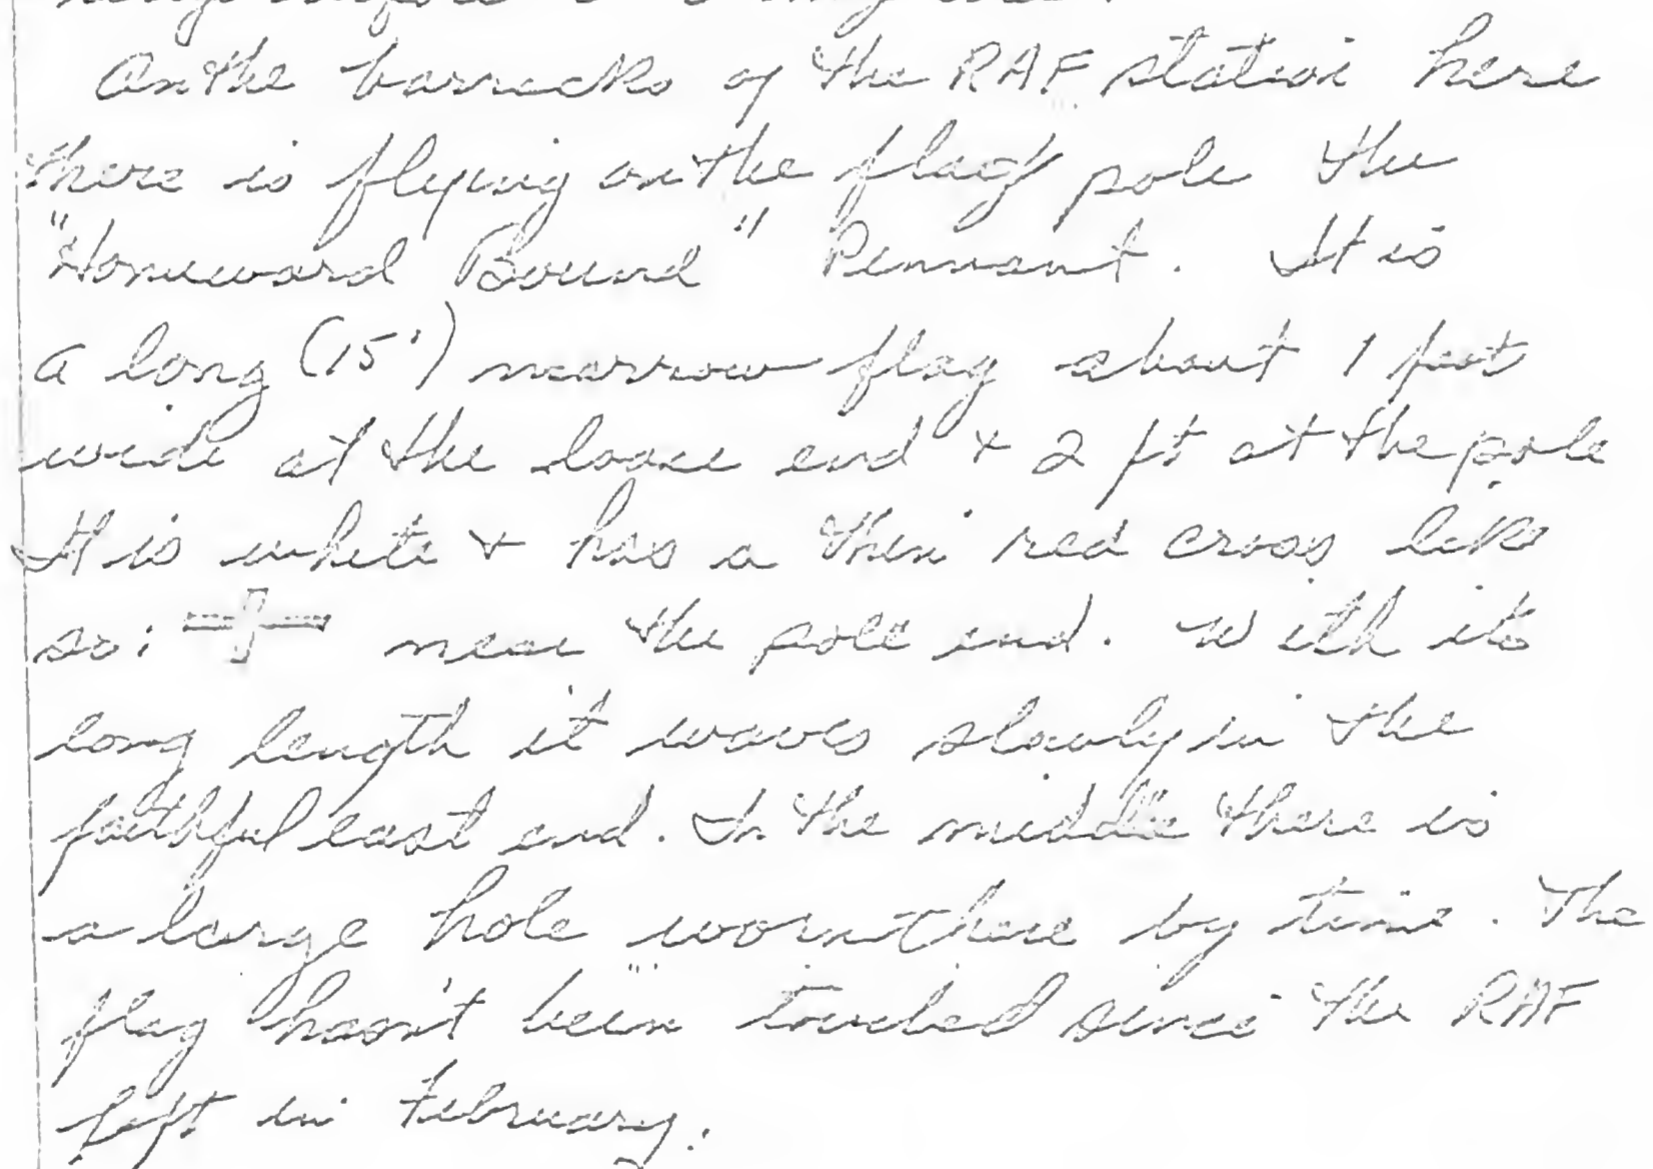 On the barracks of the RAF station here
there is flying on the flag pole the
"Homeward Bound" Pennant. It is
a long (15') narrow flag about 1 foot
wide at the loose end + 2 ft at the pole
It is white + has a thin red cross like
so: near the pole end. With its
long length it waves slowly in the
faithful east end. In the middle there is
a large hole worn there by time. The
flag hasn't been touched since the RAF
left in February.